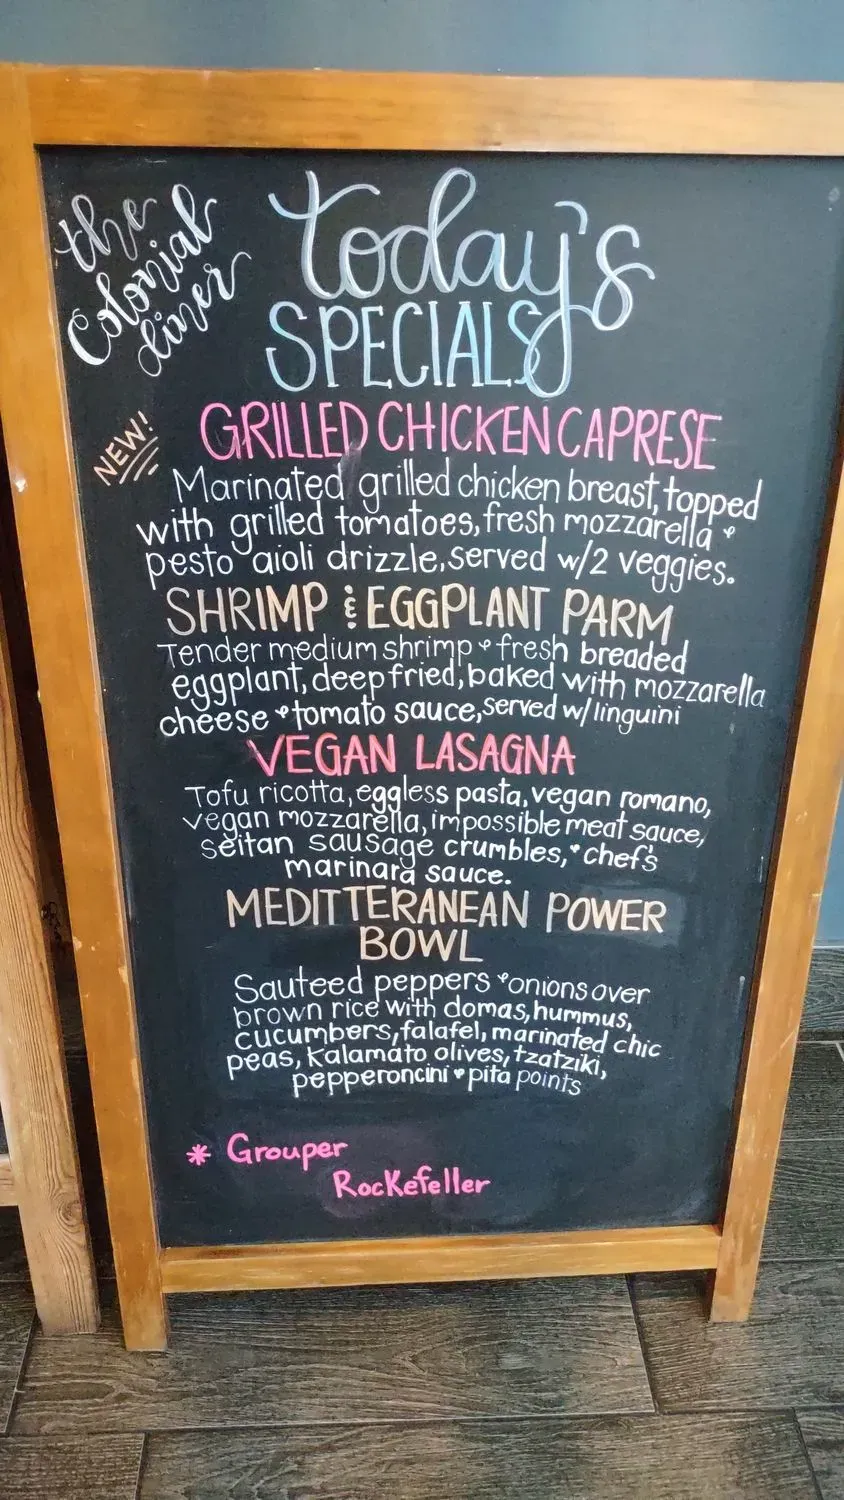 the
Colonial
diner
today's
SPECIALS
NEW!
GRILLED CHICKEN CAPRESE
Marinated grilled chicken breast, topped
with grilled tomatoes, fresh mozzarella &
pesto aioli drizzle, served w/2 veggies.
SHRIMP & EGGPLANT PARM
Tender medium shrimp & fresh breaded
eggplant, deep fried, baked with mozzarella
cheese & tomato sauce, served w/linguini
VEGAN LASAGNA
Tofu ricotta, eggless pasta, vegan romano,
vegan mozzarella, impossible meat sauce,
seitan sausage crumbles, & chef's
marinara sauce.
MEDITTERANEAN POWER
BOWL
Sauteed peppers & onions over
brown rice with domas, hummus,
cucumbers, falafel, marinated chic
peas, Kalamato olives, tzatziki,
pepperoncini & pita points
* Grouper
Rockefeller